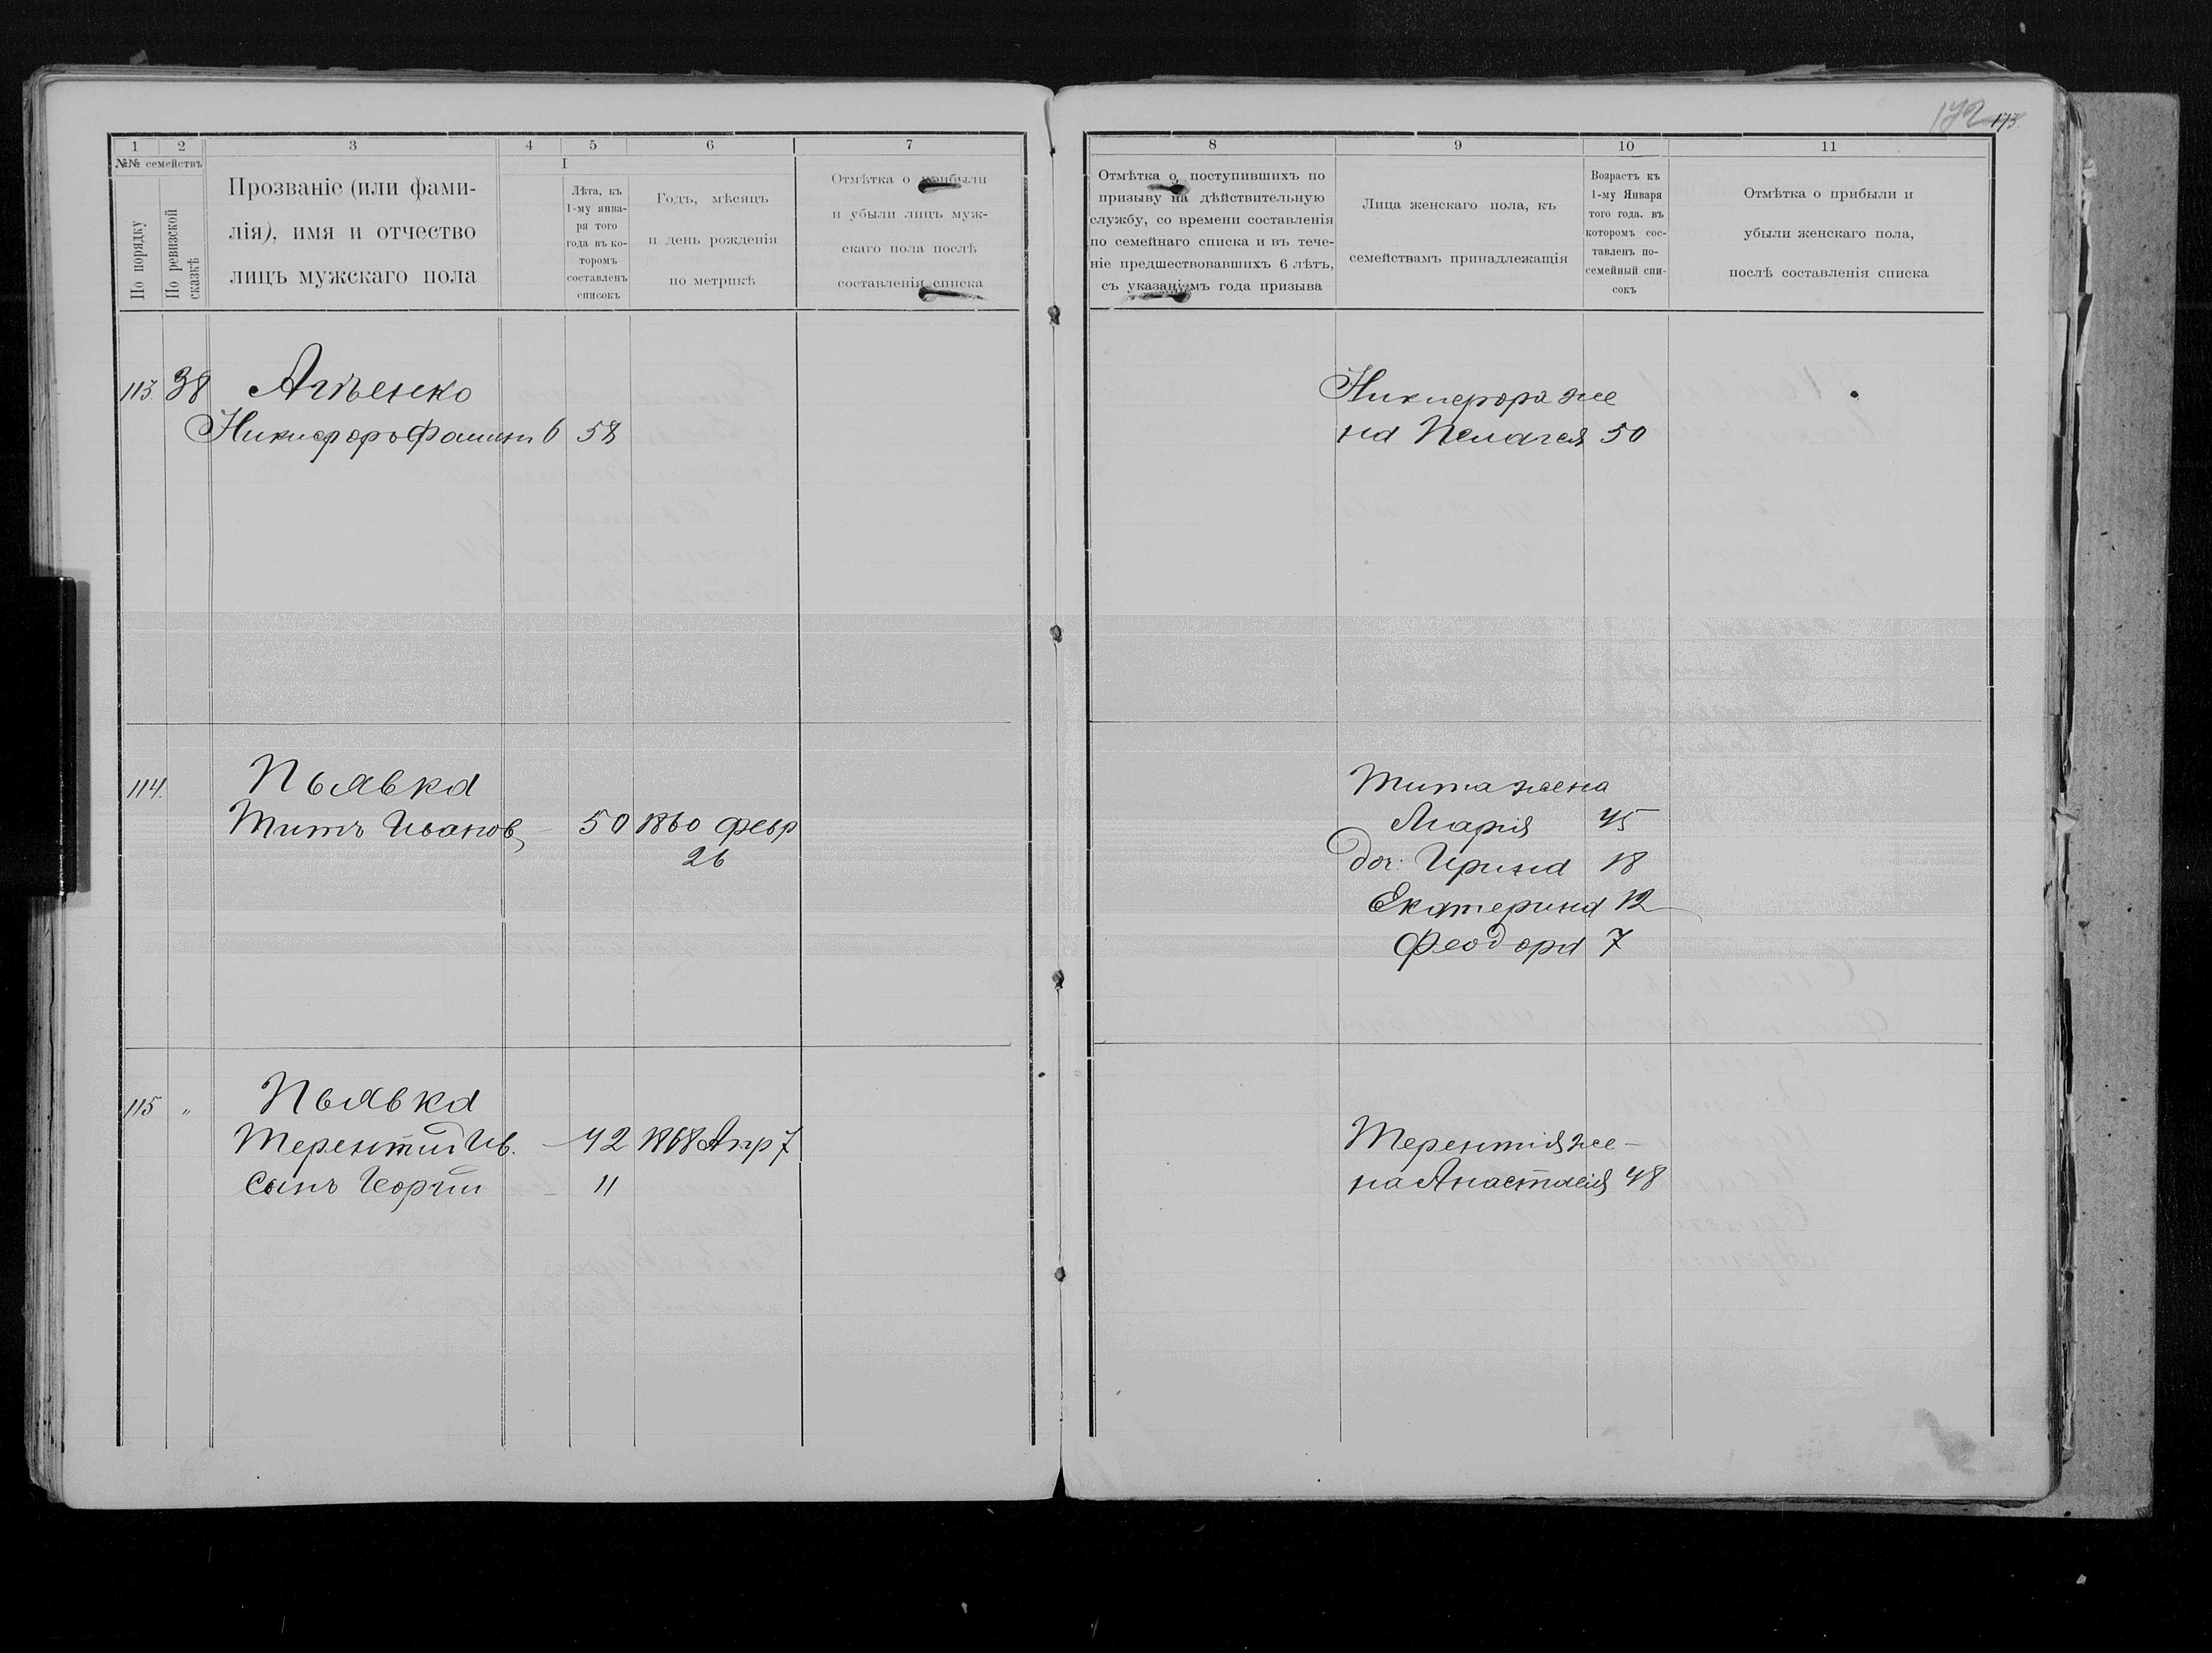 1 2 3 4 5 6 7
№№ семействъ
По порядку
По ревизской сказкѣ
Прозваніе (или фами-
лія), имя и отчество
лицъ мужскаго пола
I
Лѣта, къ
1-му янва-
ря того
года въ ко-
торомъ
составленъ
списокъ
Годъ, мѣсяцъ
и день рожденія
по метрикѣ
Отмѣтка о прибыли
и убыли лицъ муж-
скаго пола послѣ
составленія списка
113. 38
Никифоръ 58
114. Пьявка
Титъ Иванов 50 1860 февр
26
115 " Пьявка
Терентий Ив. 42 1868 Апр 7
Сынъ Георгій 11
172 173.
8 9 10 11
Отмѣтка о поступившихъ по
призыву на дѣйствительную
службу, со времени составленія
по семейнаго списка и въ тече-
ніе предшествовавшихъ 6 лѣтъ,
съ указаніемъ года призыва
Лица женскаго пола, къ
семействамъ принадлежащія
Возрастъ къ
1-му Января
того года. въ
которомъ сос-
тавленъ по-
семейный спи-
сокъ
Отмѣтка о прибыли и
убыли женскаго пола,
послѣ составленія списка
Никифора же
на Пелагея 50
Тита жена
Марія 45
доч: Ирина 18
Екатерина 12
Феодора 7
Терентія же-
на Анастасія 48